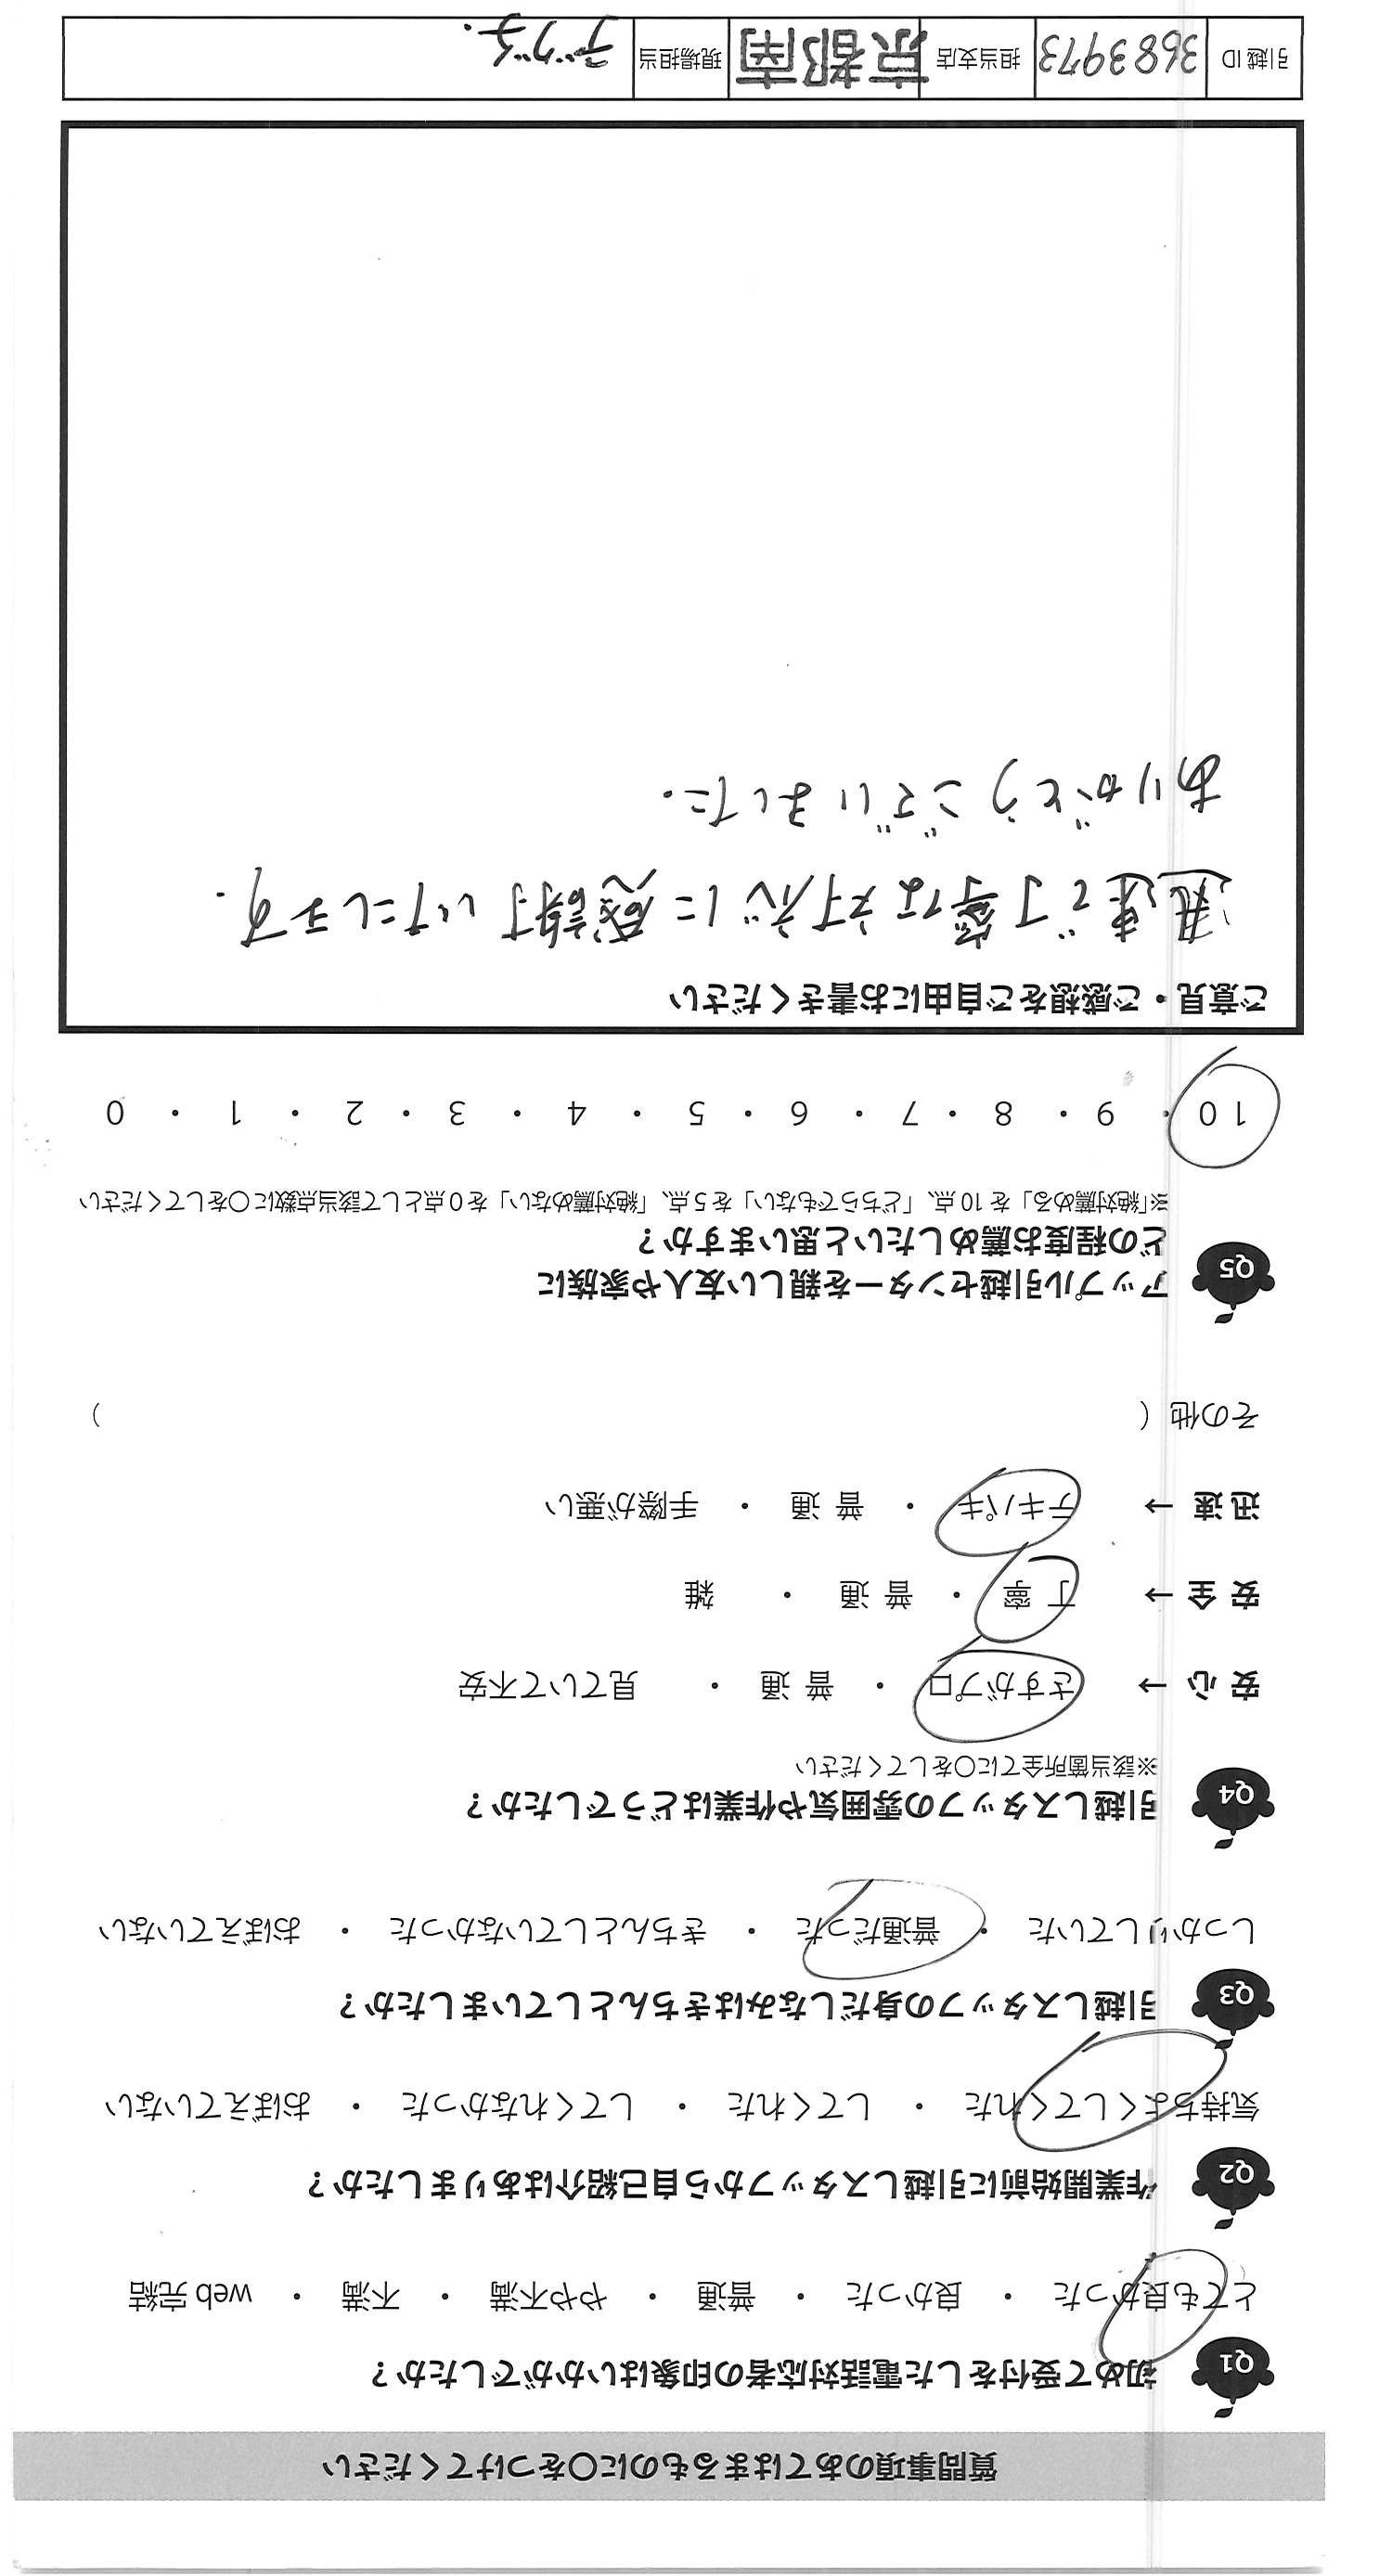 質問事項のあてはまるものに〇をつけてください
Q1 初めて受付をした電話対応者の印象はいかがでしたか？
とても良かった ・ 良かった ・ 普通 ・ やや不満 ・ 不満 ・ web 完結
Q2 作業開始前に引越しスタッフから自己紹介はありましたか？
気持ちよくしてくれた ・ してくれた ・ してくれなかった ・ おぼえていない
Q3 引越しスタッフの身だしなみはきちんとしていましたか？
しっかりしていた ・ 普通だった ・ きちんとしていなかった ・ おぼえていない
Q4 引越しスタッフの雰囲気や作業はどうでしたか？
※該当箇所全てに〇をしてください
安 心 → さすがプロ ・ 普 通 ・ 見ていて不安
安 全 → 丁 寧 ・ 普 通 ・ 雑
迅 速 → テキパキ ・ 普 通 ・ 手際が悪い
その他（ ）
Q5 アップル引越センターを親しい友人や家族に
どの程度お薦めしたいと思いますか？
※「絶対薦める」を 10 点、「どちらでもない」を 5 点、「絶対薦めない」を 0 点として該当点数に〇をしてください
10 ・ 9 ・ 8 ・ 7 ・ 6 ・ 5 ・ 4 ・ 3 ・ 2 ・ 1 ・ 0
ご意見・ご感想をご自由にお書きください
迅速で丁寧な対応に感謝いたします.
ありがとうございました.
引越 ID 3683973 担当支店 京都南 現場担当